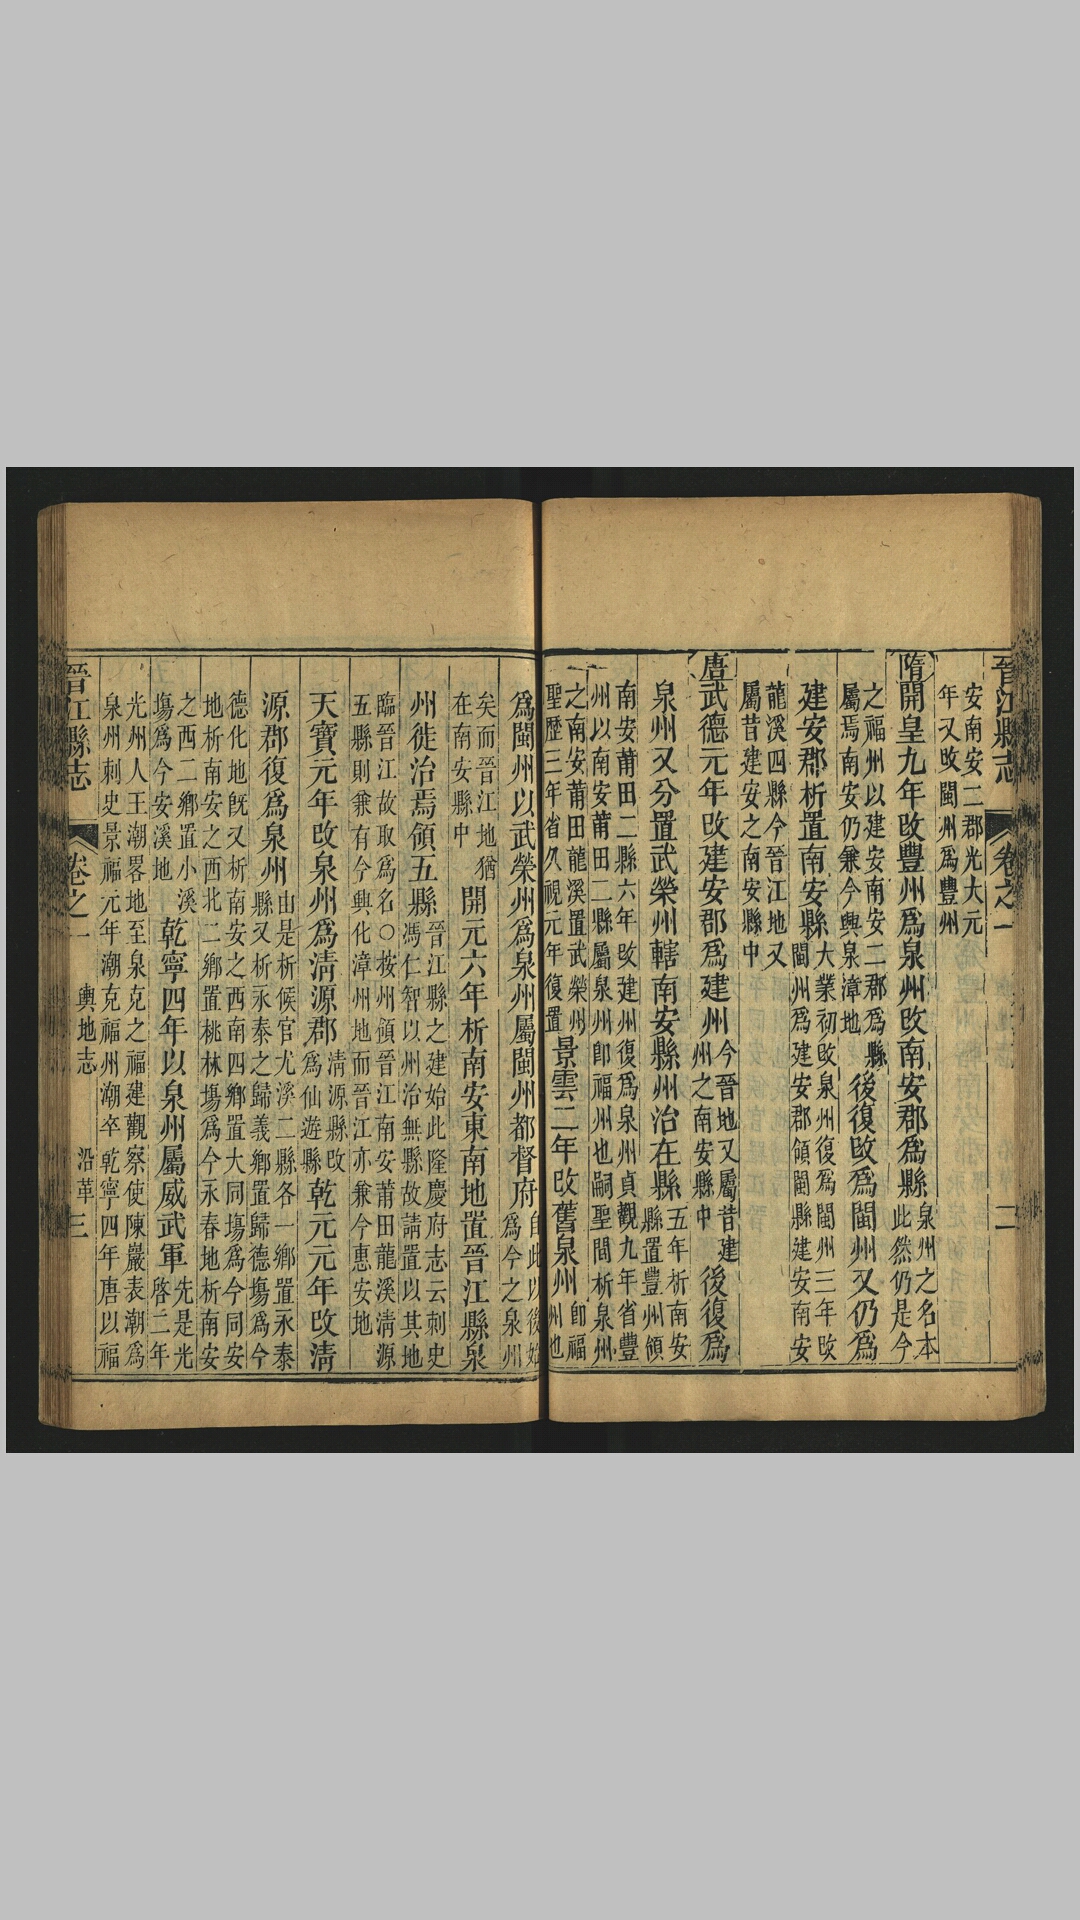 晉江縣志 卷之一 二
安南安二郡光大元
年又改閩州爲豐州
隋開皇九年改豐州爲泉州改南安郡爲縣泉州之名本
此然仍是今
之福州以建安南安二郡爲縣
屬焉南安仍兼今興泉漳地
後復改爲閩州又仍爲
建安郡析置南安縣大業初改泉州復爲閩州三年改
閩州爲建安郡領閩縣建安南安
龍溪四縣今晉江地又
屬昔建安之南安縣中
唐武德元年改建安郡爲建州今晉地又屬昔建
州之南安縣中
後復爲
泉州又分置武榮州轄南安縣州治在縣五年析南安
縣置豐州領
南安莆田二縣六年改建州復爲泉州貞觀九年省豐
州以南安莆田二縣屬泉州卽福州也嗣聖間析泉州
之南安莆田龍溪置武榮州
聖歷三年省久視元年復置
景雲二年改舊泉州卽福
州也
爲閩州以武榮州爲泉州屬閩州都督府自此以後始
爲今之泉州
矣而晉江地猶
在南安縣中
開元六年析南安東南地置晉江縣泉
州徙治焉領五縣晉江縣之建始此隆慶府志云刺史
馮仁智以州治無縣故請置以其地
臨晉江故取爲名○按州領晉江南安莆田龍溪清源
五縣則兼有今興化漳州地而晉江亦兼今惠安地
天寶元年改泉州爲清源郡清源縣改
爲仙遊縣
乾元元年改清
源郡復爲泉州由是析候官尤溪二縣各一鄉置永泰
縣又析永泰之歸義鄉置歸德塲爲今
德化地旣又析南安之西南四鄉置大同塲爲今同安
地析南安之西北二鄉置桃林塲爲今永春地析南安
之西二鄉置小溪
塲爲今安溪地
乾寧四年以泉州屬威武軍先是光
啓二年
光州人王潮畧地至泉克之福建觀察使陳巖表潮爲
泉州刺史景福元年潮克福州潮卒乾寧四年唐以福
晉江縣志 卷之一 輿地志 沿革 三